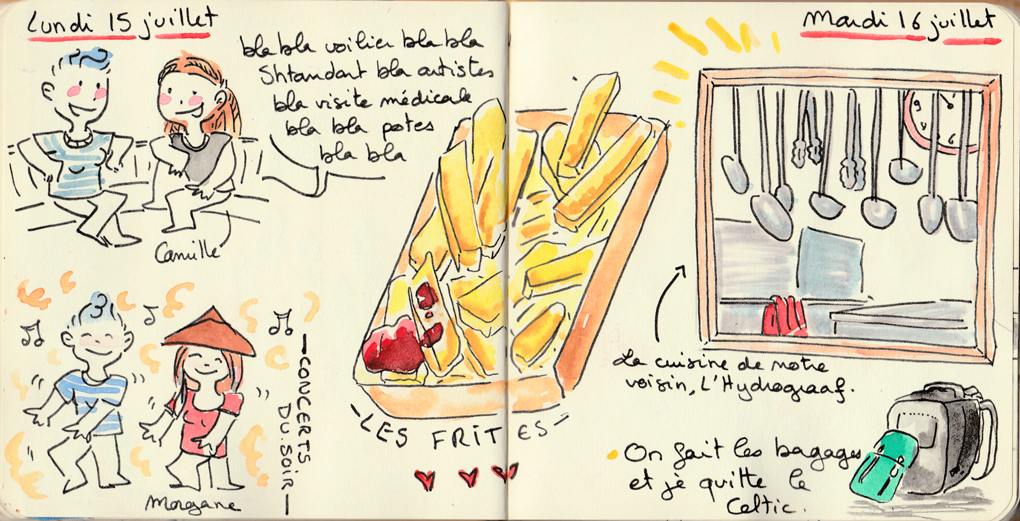 Lundi 15 juillet
bla bla voilier bla bla
Shtandart bla artistes
bla visite médicale
bla bla potes
bla bla
Camille
CONCERTS
DU SOIR
Morgane
LES FRITES
Mardi 16 juillet
La cuisine de notre
voisin, L'Hydrograaf.
On fait les bagages
et je quitte le
Celtic.